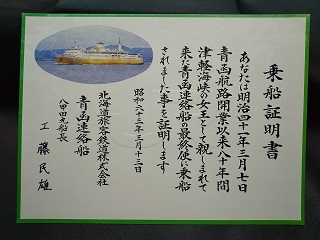 乗船証明書
あなたは明治四十一年三月七日
青函航路開業以来八十年間
津軽海峡の女王として親しまれて
来た青函連絡船の最終便に乗船
されました事を証明します
昭和六十三年三月十三日
北海道旅客鉄道株式会社
青函連絡船
八甲田丸船長
工藤民雄